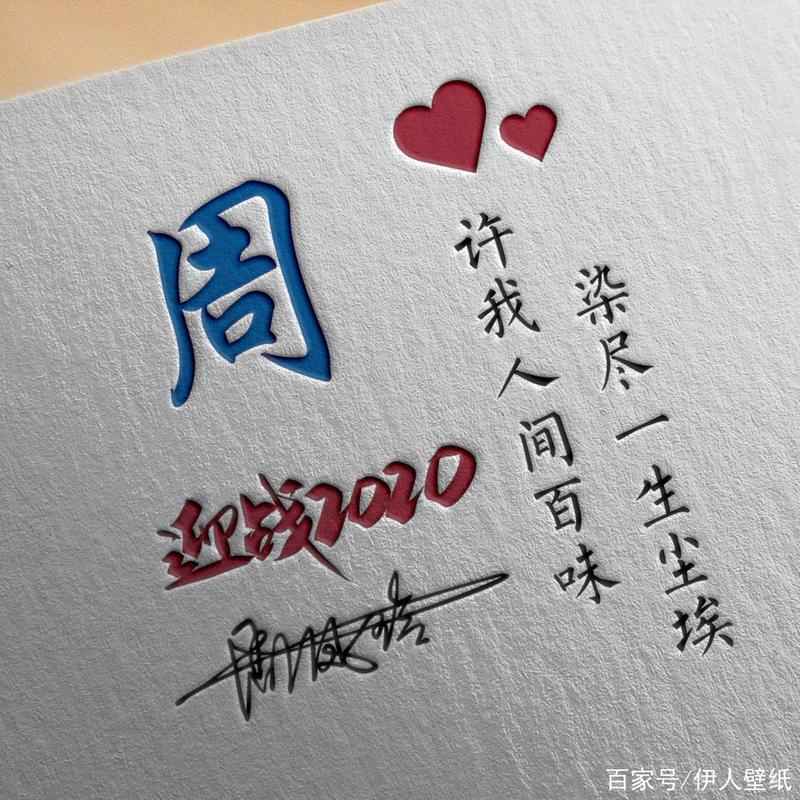 周
染尽一生尘埃
许我人间百味
迎战2020
百家号/伊人壁纸